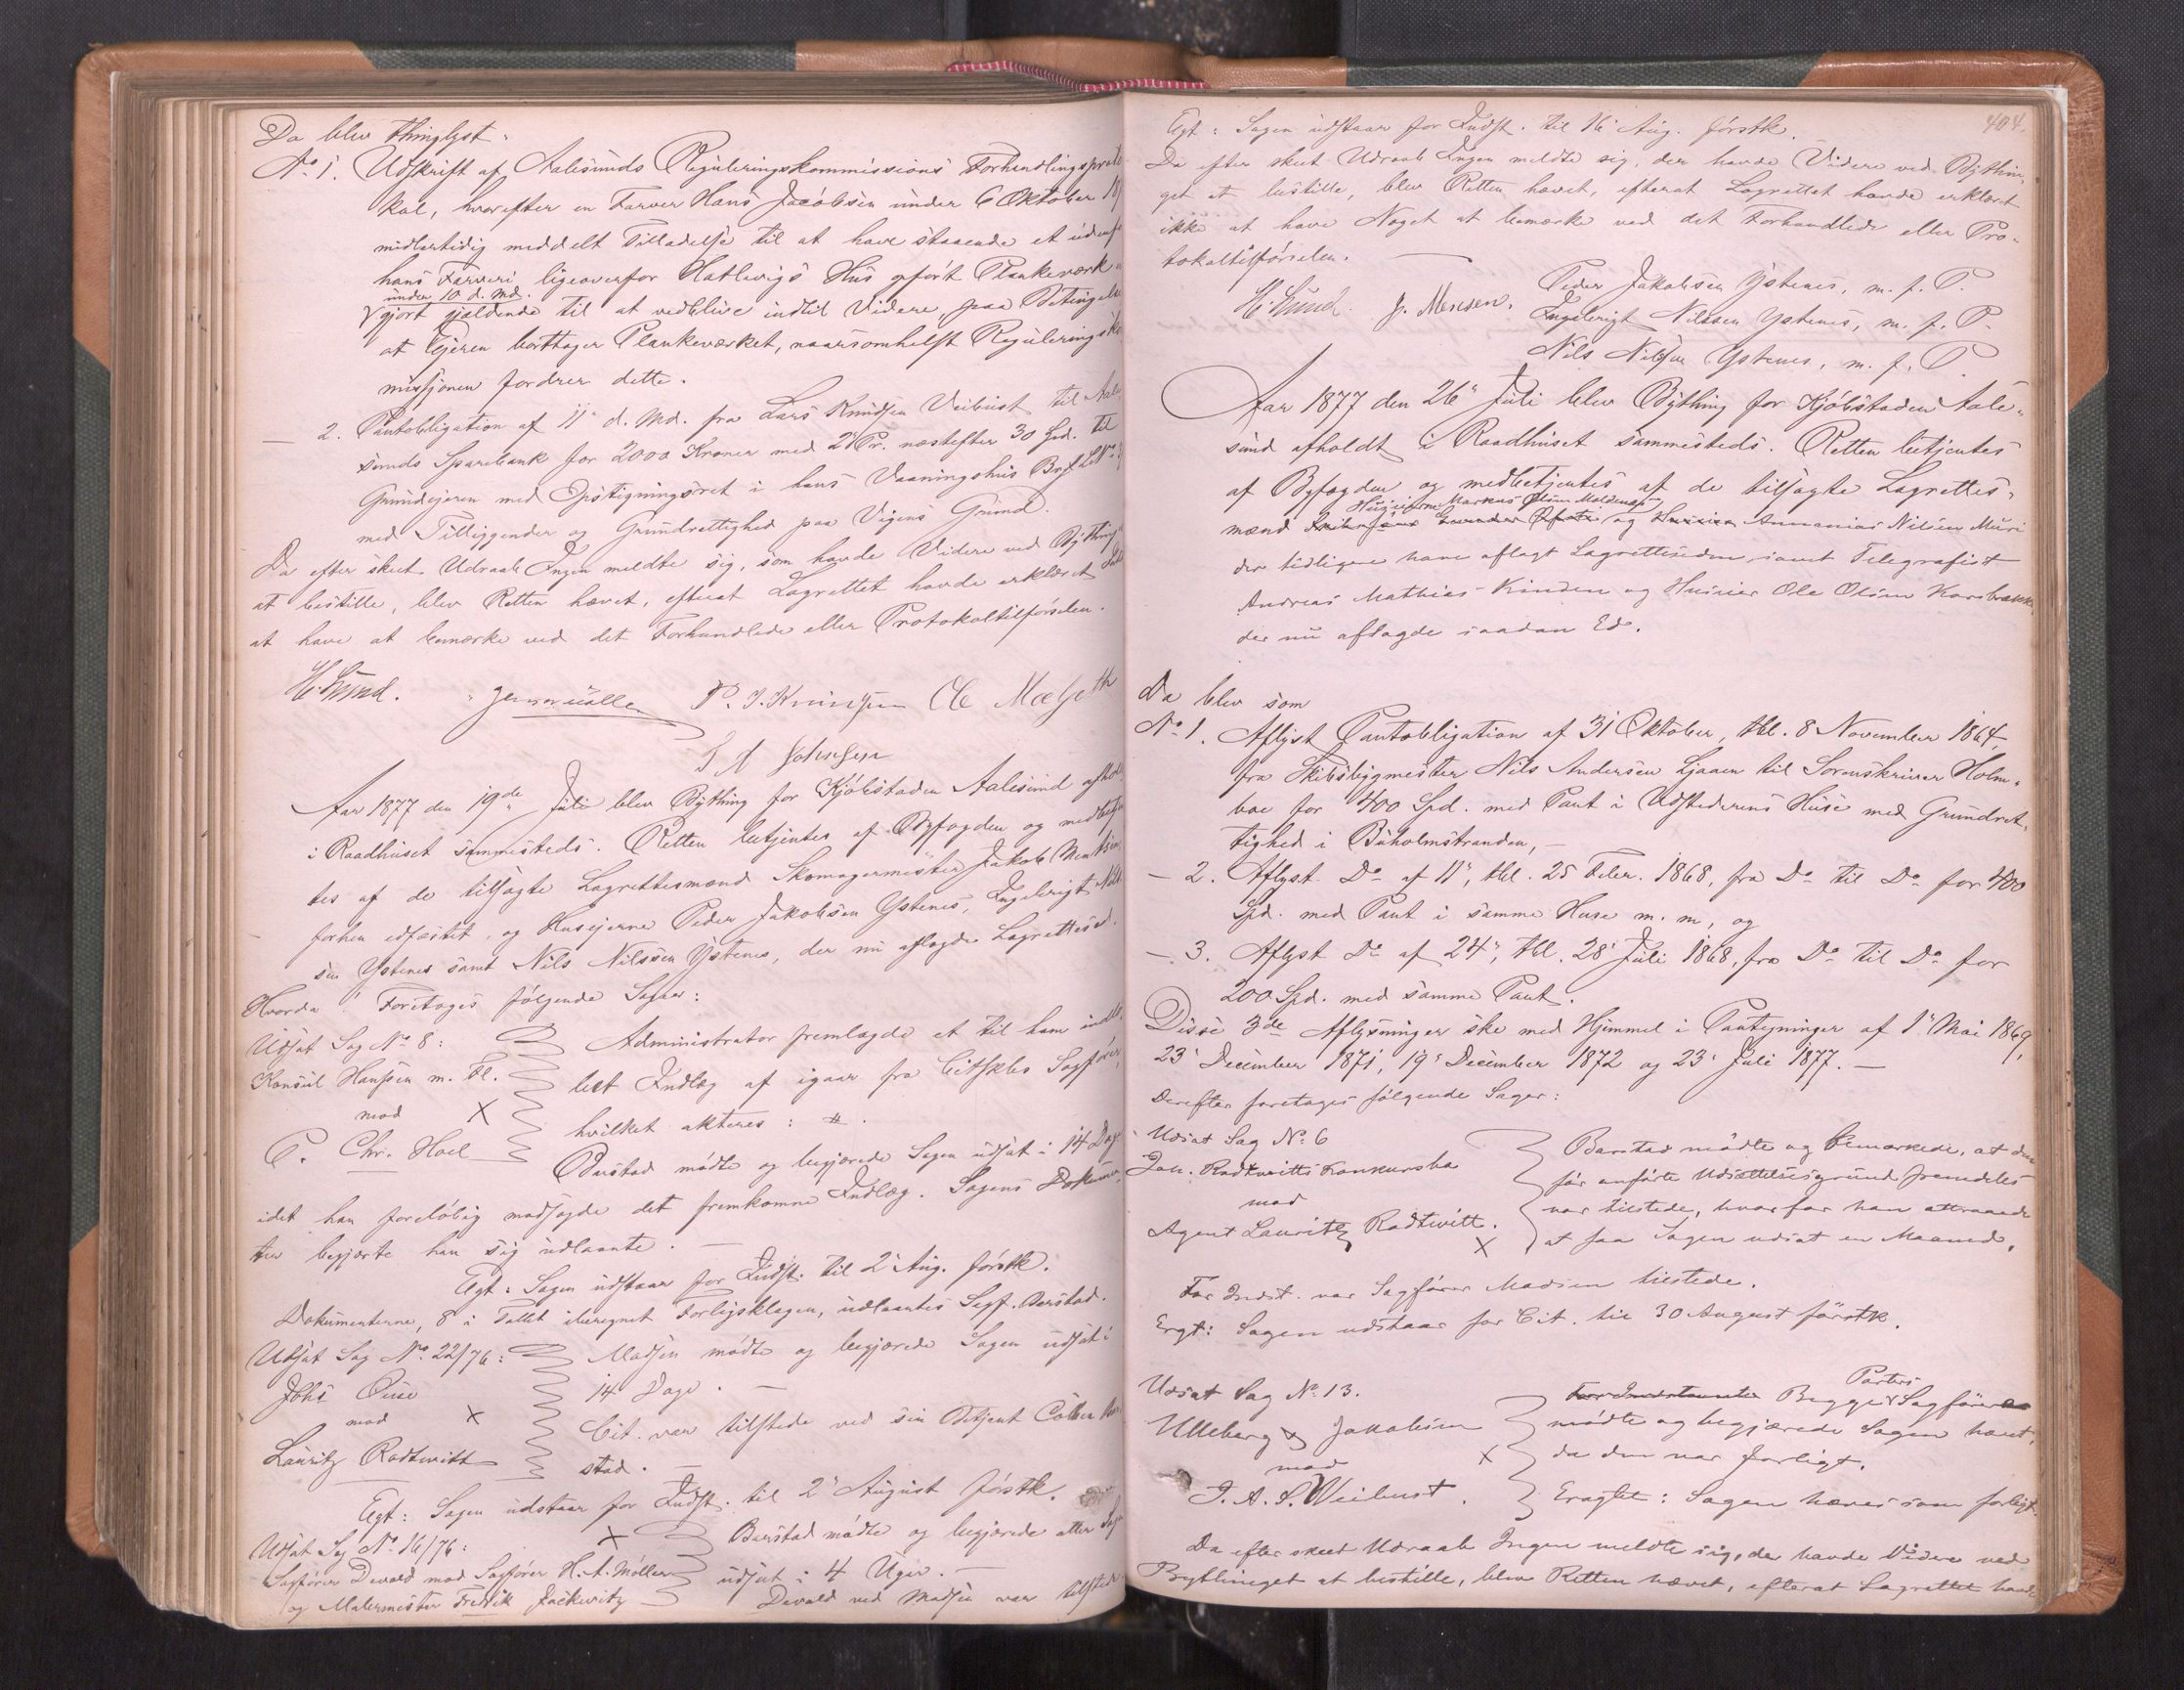 Da blev thinglyst:
No 1. Udskrift af Aalesunds Reguleringskommissions Forhandlingsproto
kol, hvorefter en Farver Hans Jacobsen under 6 Oktober 18
midlertidig meddelt Tilladelse til at have staaende et udenfor
hans Farveri ligeoverfor Hatlevigs Hus opført Plankeværk
under 10 d. Md.
gjort gjældende til at vedblive indtil Videre, paa Betingelse
at Ejeren borttager Plankeværket, naarsomhelst Regulerings
missjonen fordrer dette.
— 2. Pantobligation af 11' d. Md. fra Lars Knudsen Veibust til Aale
sunds Sparebank for 2000 Kroner med 2' Pr. næstefter 30 Spd. til
Grundejeren med Opstigningsret i hans Vaaningshus
med Tilliggender og Grundrettighed paa Vigens Grund.
Da efter skeet Udraab Ingen meldte sig, som havde Videre ved Bything
at bestille, blev Retten hævet, efterat Lagrettet havde erklæret Intet
at have at bemærke ved det Forhandlede eller Protokoltilførselen.
H. Lund. Jensmülle P. J. Knudsen Ole Mælseth
Johnsen
Aar 1877 den 19de Juli blev Bything for Kjøbstaden Aalesund afholdt
i Raadhuset sammesteds. Retten betjentes af Byfogden og medbetjen
tes af de tilsagte Lagrettesmænd Skomagermester Jakob Monsen
forhen edfæstet, og Husejerne Peder Jakobsen Ystenes, Ingebrigt Nils
sen Ystenes samt Nils Nilssen Ystenes, der nu aflagde Lagrettesed.
Hvorda Foretoges følgende Sager:
Udsat Sag No 8: Administrator fremlagde et til ham indle
Konsul Hanssen m. Fl. vert Indlæg af igaar fra Citskbs Sagfører,
mod X hvilket akteres: #.
P. Chr. Hoel
Barstad mødte og begjærede Sagen udsat i 14 Dage
idet han foreløbig modsagde det fremkomne Indlæg. Sagens Dokumen
ter begjærte han sig udlaante. —
Egt: Sagen udstaar for Indst. til 2' Aug. førstk.
Dokumenterne, 8 i Tallet iberegnet Forligsklagen, udlaantes Sagf. Barstad.
Udsat Sag No 22/76: Madsen mødte og begjærede Sagen udsat i
Johs Buse 14 Dage. —
mod X Cit. var tilstede ved sin Betjent
Lauritz Radtwitt stad. —
Egt: Sagen udstaar for Indst. til 2' August førstk.
Udsat Sag No 16/76: X Barstad mødte og begjærede atter Sagen
Sagfører Devold mod Sagfører H. A. Møller udsat i 4 Uger. —
og Malermester Fredrik Jackwitz Devold ved Madsen var tilstede
404.
Egt: Sagen udstaar for Indst. til 16' Aug. førstk.
Da efter skeet Udraab Ingen meldte sig, der havde Videre ved Bythin-
get at bestille, blev Retten hævet, efterat Lagrettet havde erklæret
ikke at have Noget at bemærke ved det Forhandlede eller Pro-
tokoltilførselen. —
H. Lund. J. Monsen. Peder Jakobsen Ystenes, m. f. P.
Ingebrigt Nilssen Ystenes, m. f. P.
Nils Nilssen Ystenes, m. f. P.
Aar 1877 den 26' Juli blev Bything for Kjøbstaden Aale-
sund afholdt i Raadhuset sammesteds. Retten betjentes
af Byfogden og medbetjentes af de tilsagte Lagrettes-
Husejerne Markus Olsen Moldenæs
mænd og Husejer Annanias Nilsen Muri
der tidligere have aflagt Lagretteseden, samt Telegrafist
Andreas Mathias Kinden og Husejer Ole Olsen Korsbrække
der nu aflagde saadan Ed.
Da blev som
No 1. Aflyst Pantobligation af 31 Oktober, thl. 8 November 1864,
fra Skibsbygmester Nils Andersen Ljaaen til Sorenskriver Holm-
boe for 400 Spd. med Pant i Udstederens Huse med Grundret-
tighed i Buholmstranden, —
— 2. Aflyst Do af 11', thl. 25 Febr. 1868, fra Do til Do for 400
Spd. med Pant i samme Huse m. m, og
— 3. Aflyst Do af 24', thl. 28' Juli 1868, fra Do til Do for
200 Spd. med samme Pant.
Disse 3de Aflysninger ske med Hjemmel i Panteyninger af 1' Mai 1869,
23' December 1871, 19' December 1872 og 23' Juli 1877. —
Derefter foretoges følgende Sager:
Udsat Sag No 6 Barstad mødte og bemærkede, at den
Joh. Radtwitts Konkursbo før anførte Udsættelsesgrund fremdeles
mod var tilstede, hvorfor han attraaede
Agent Lauritz Radtwitt. X at faa Sagen udsat en Maaned.
For Indst. var Sagfører Madsen tilstede.
Eragt: Sagen udstaar for Cit. til 30 August førstk.
Udsat Sag No 13. For Indstævnte Begge Parters Sagførere
Ulleberg & Jakobsen mødte og begjærede Sagen hævet,
mod X da den var forligt.
J. A. S. Weibust. Eragtet: Sagen hæves som forligt.
Da efter skeet Udraab Ingen meldte sig, der havde Videre ved
Bythinget at bestille, blev Retten hævet, efterat Lagrettet havde